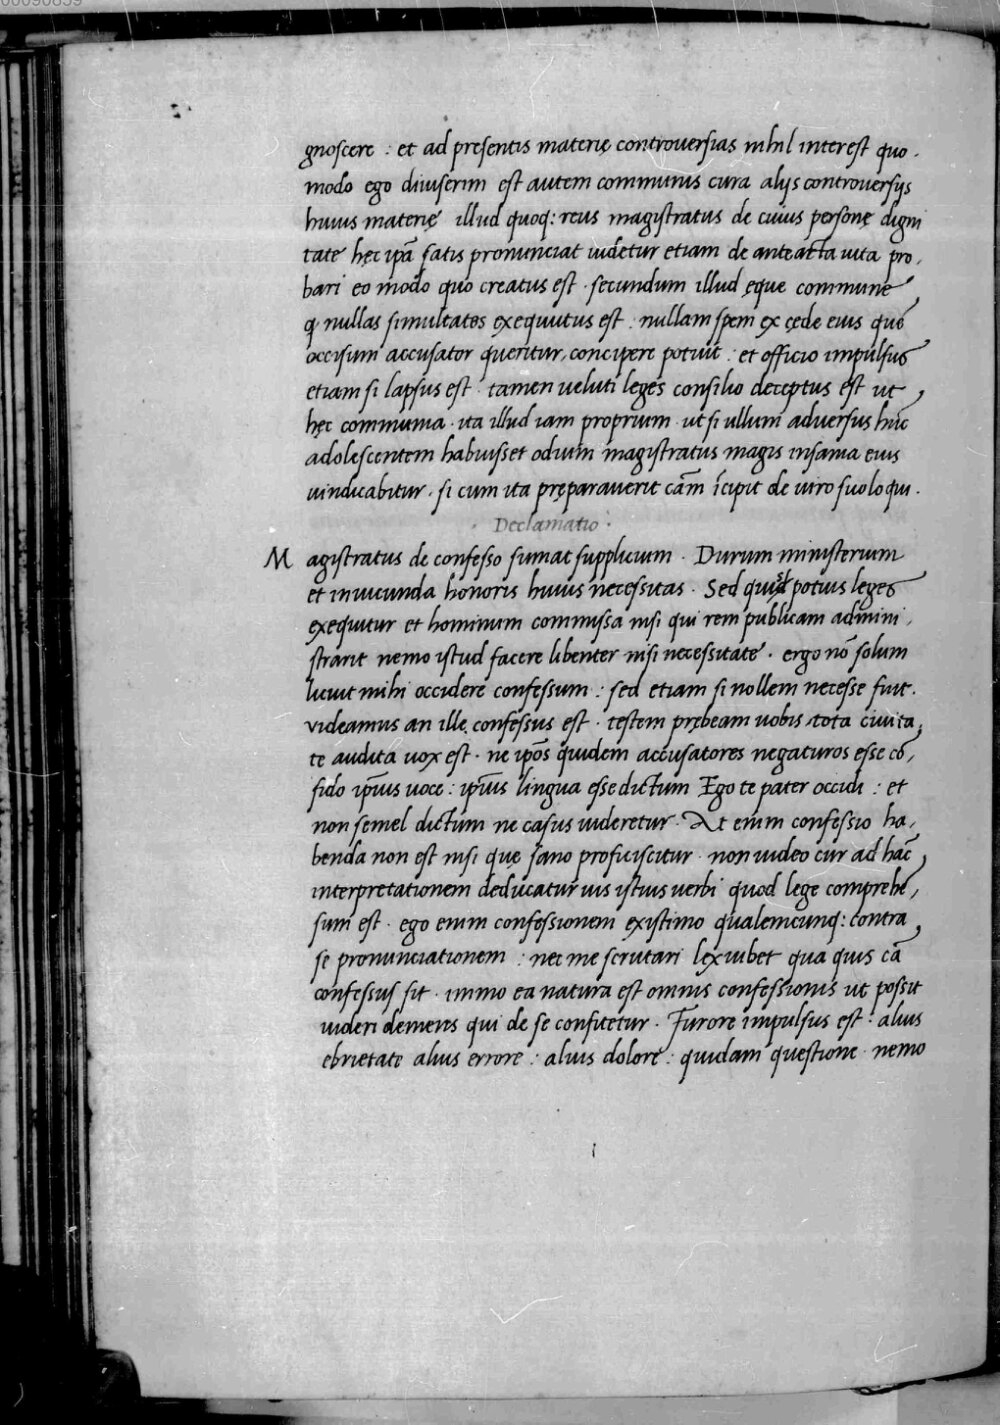 00090859
gnoscere : et ad presentis materię controuersias nihil interest quo .
modo ego diuiserim est autem communis cura alijs controuersijs
huius materię illud quoq: reus magistratus de cuius personę digni
tate hęc ipā satis pronunciat uidetur etiam de anteacta uita pro ,
bari eo modo quo creatus est . secundum illud ęque commune ,
q nullas simultates exequutus est . nullam spem ex cęde eius quē
occisum accusator queritur, concipere potuit . et officio impulsus
etiam si lapsus est . tamen ueluti leges consilio deceptus est ut ,
hęc communia . ita illud iam proprium . ut si ullum aduersus hūc
adolescentem habuisset odium magistratus magis insania eius
uindicabitur . si cum ita pręparauerit cām īcipit de uiro suo loqui .
. Declamatio .
M agistratus de confesso sumat supplicium . Durum ministerium
et iniucunda honoris huius necessitas . Sed potius leges
exequitur et hominum commissa nisi qui rem publicam admini ,
strarit nemo istud facere libenter nisi necessitate . ergo nō solum
licuit mihi occidere confessum : sed etiam si nollem necesse fuit .
videamus an ille confessus est . testem prębeam uobis tota ciuita ,
te audita uox est . ne ipōs quidem accusatores negaturos esse cō ,
fido ipīus uoce : ipīus lingua esse dictum Ego te pater occidi : et
non semel dictum ne casus uideretur . At enim confessio ha ,
benda non est nisi quę sano proficiscitur . non uideo cur ad hāc ,
interpretationem deducatur uis istius uerbi quod lege comprehē ,
sum est . ego enim confessionem existimo qualemcunq: contra ,
se pronunciationem : nec me scrutari lex iubet qua quis cā
confessus sit . immo ea natura est omnis confessionis ut possit
uideri demens qui de se confitetur . Furore impulsus est : alius
ebrietate alius errore : alius dolore : quidam quęstione . nemo